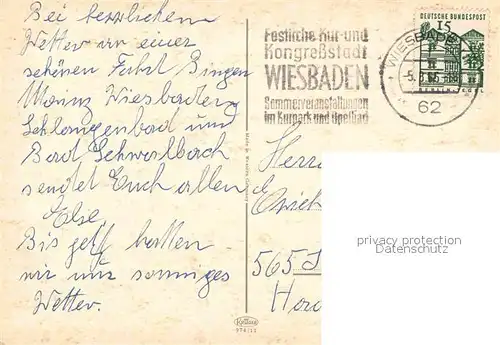 Bei herrlichem
Wetter an einer
schönen Fahrt Bingen
Mainz Wiesbaden
Schlangenbad und
Bad Schwalbach
sendet Euch allen
Else
Bis jetzt hatten
wir nur sonniges
Wetter.
Festliche Kur- und
Kongreßstadt
WIESBADEN
Sommerveranstaltungen
im Kurpark und Opelbad
WIESBADEN
62
DEUTSCHE BUNDESPOST
15
BERLIN TEGEL
Herrn
565 S
privacy protection
Datenschutz
Krüger
974/13